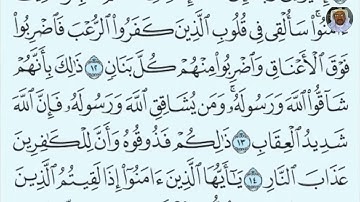 ءَامَنُوا۟ۚ سَأُلْقِى فِى قُلُوبِ ٱلَّذِينَ كَفَرُوا۟ ٱلرُّعْبَ فَٱضْرِبُوا۟
فَوْقَ ٱلْأَعْنَاقِ وَٱضْرِبُوا۟ مِنْهُمْ كُلَّ بَنَانٍ ١٢ ذَٰلِكَ بِأَنَّهُمْ
شَآقُّوا۟ ٱللَّهَ وَرَسُولَهُۥۚ وَمَن يُشَاقِقِ ٱللَّهَ وَرَسُولَهُۥ فَإِنَّ ٱللَّهَ
شَدِيدُ ٱلْعِقَابِ ١٣ ذَٰلِكُمْ فَذُوقُوهُ وَأَنَّ لِلْكَٰفِرِينَ
عَذَابَ ٱلنَّارِ ١٤ يَٰٓأَيُّهَا ٱلَّذِينَ ءَامَنُوٓا۟ إِذَا لَقِيتُمُ ٱلَّذِينَ